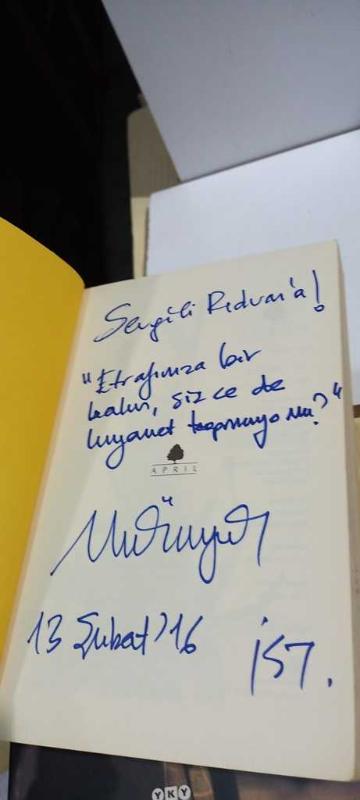 Sevgili Rıdvan'a!
"Etrafınıza bir
bakın, sizce de
kıyamet kopmuyo mu?"
APRIL
13 Şubat '16
İST.
YKY